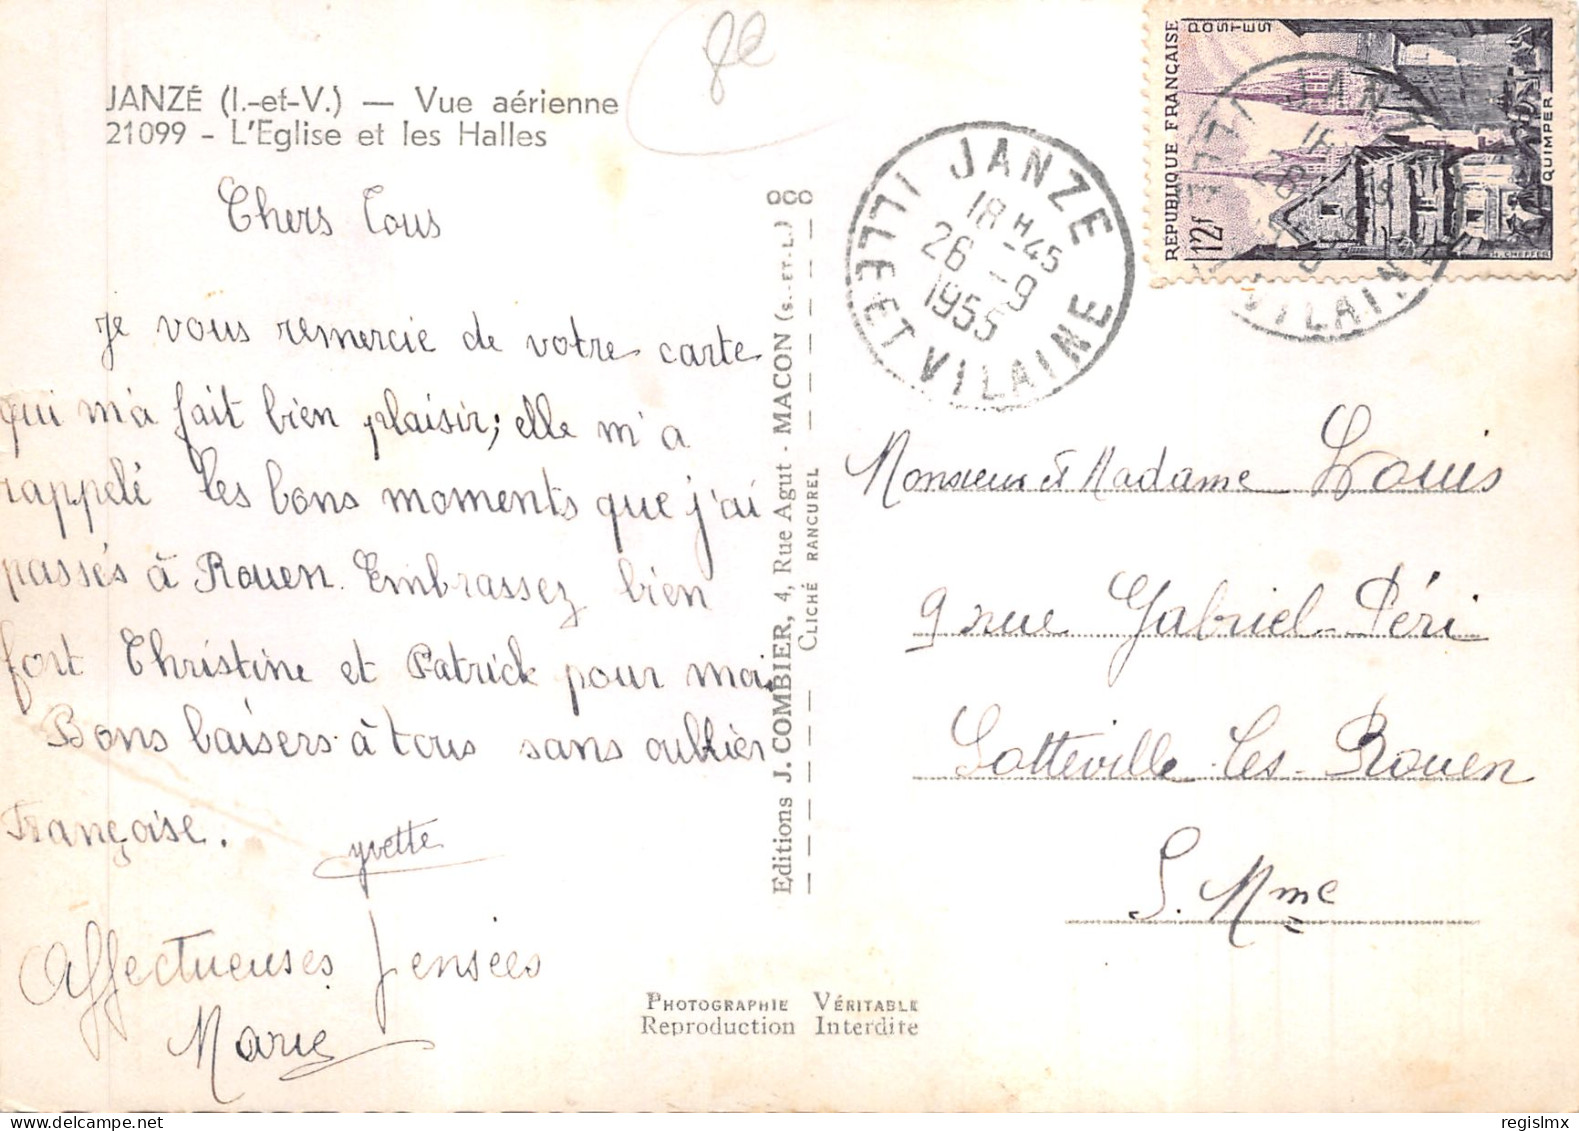 JANZÉ (I.-et-V.) — Vue aérienne
21099 - L'Eglise et les Halles
Chers Tous
Je vous remercie de votre carte
qui m'a fait bien plaisir; elle m'a
rappelé les bons moments que j'ai
passés à Rouen. Embrassez bien
fort Christine et Patrick pour moi.
Bons baisers à tous sans oublier
Françoise.
yvette
Affectueuses pensées
Marie
Editions J. COMBIER, 4, Rue Agut - MACON (S.-ET-L.)
CLICHÉ RANCUREL
PHOTOGRAPHIE VÉRITABLE
Reproduction Interdite
JANZE
18 H 45
26 - 9
1955
ILLE ET VILAINE
REPUBLIQUE FRANÇAISE
POSTES
12f
QUIMPER
H. CHEFFER
Monsieur et Madame Louis
9 rue Gabriel Péri
Sotteville-les-Rouen
S. Mme
regislmx